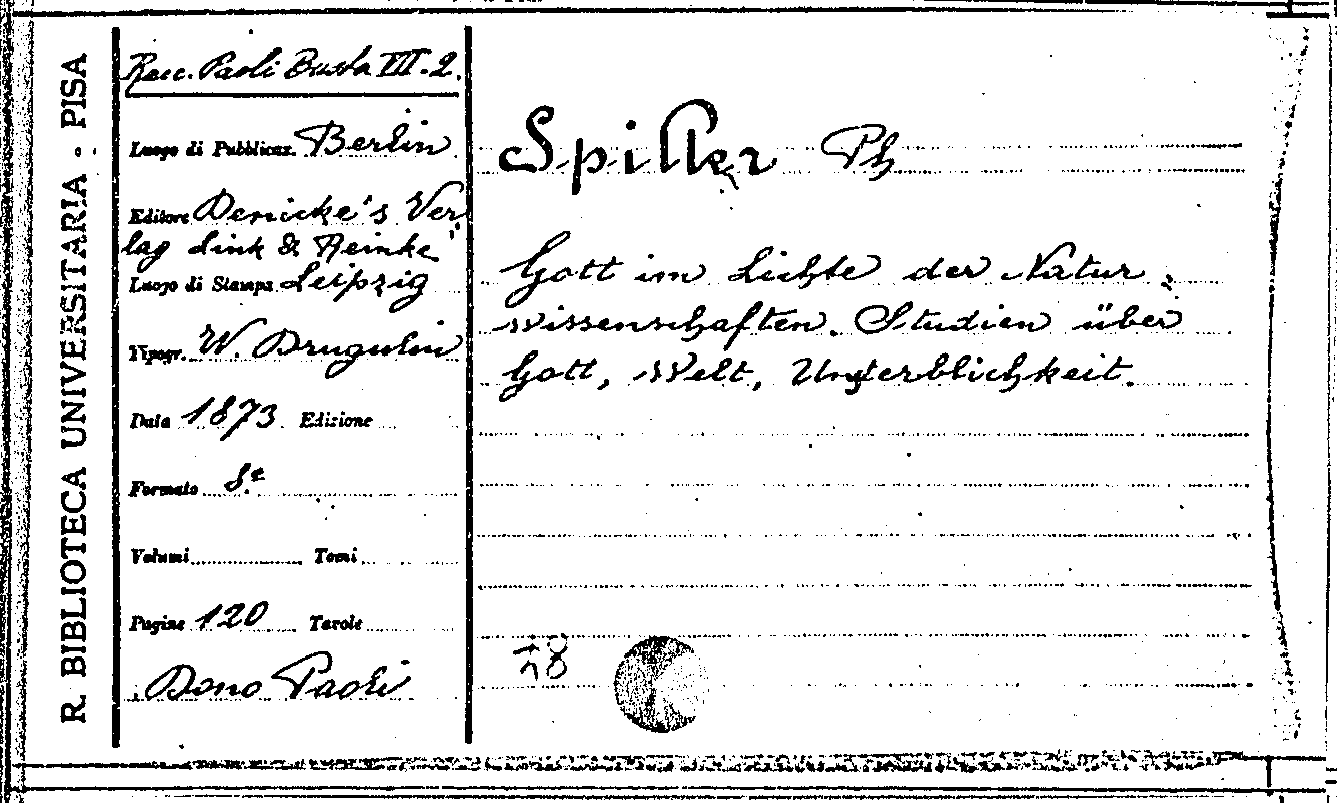 R. BIBLIOTECA UNIVERSITARIA - PISA
Racc. Paoli Busta VII. 2.
Luogo di Pubblicaz. Berlin
Editore Denicke's Ver-
lag Link & Reinke
Luogo di Stampa Leipzig
Tipogr. W. Drugulin
Data 1873 Edizione
Formato 8.º
Volumi Tomi
Pagine 120 Tavole
Dono Paoli
Spiller Ph
Gott im Lichte der Natur-
wissenschaften. Studien über
Gott, Welt, Unsterblichkeit.